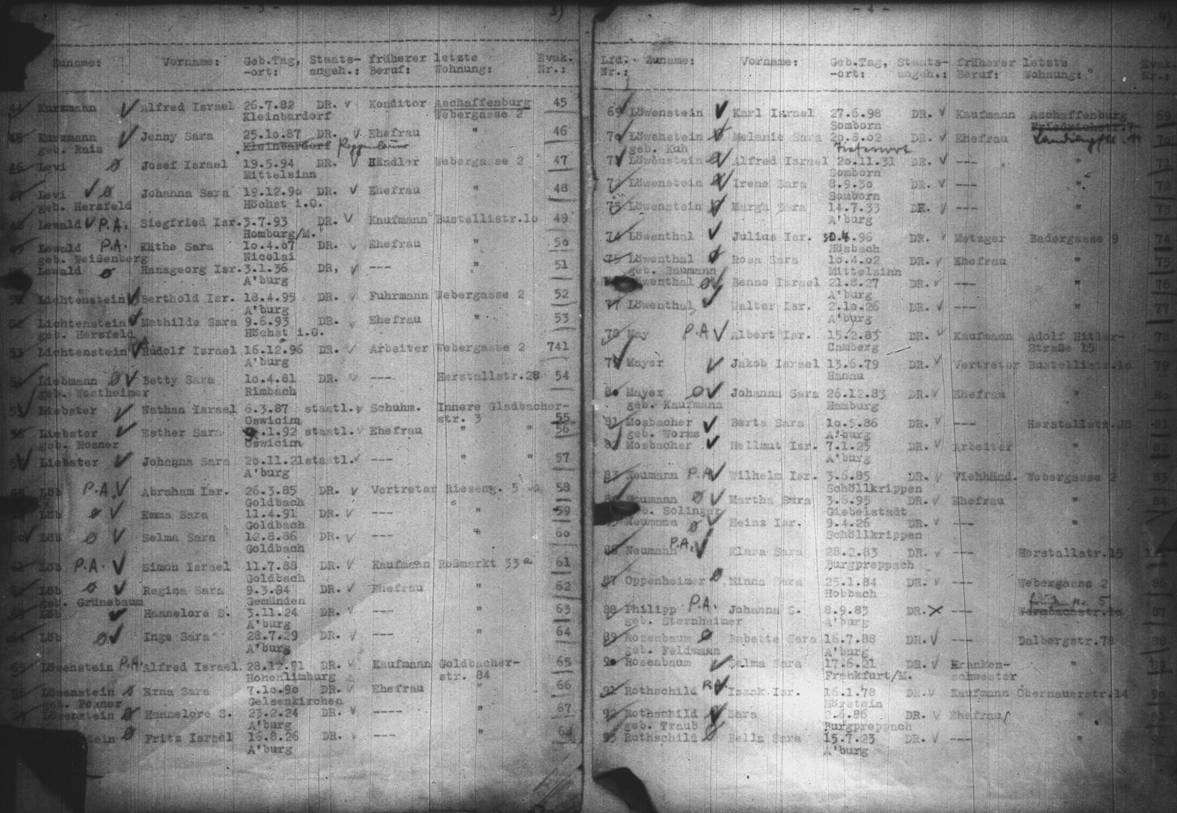 - 3 -
Zuname: Vorname: Geb.Tag, Staats- früherer letzte Evak.
-ort: angeh.: Beruf: Wohnung: Nr.:
44 Kurzmann Alfred Israel 26.7.82 DR. Konditor Aschaffenburg 45
Kleinbardorf Webergasse 2
45 Kurzmann Jenny Sara 25.10.87 DR. Ehefrau " 46
geb. Rais Kleinbardorf
46 Levi Josef Israel 19.5.94 DR. Händler Webergasse 2 47
Mittelsinn
47 Levi Johanna Sara 19.12.90 DR. Ehefrau " 48
geb. Herzfeld Höchst i.O.
48 Lewald P.A. Siegfried Isr. 3.7.93 DR. Kaufmann Bustellistr.10 49
Homburg/M.
Lewald P.A. Käthe Sara 10.4.07 DR. Ehefrau " 50
geb. Weißenberg Nicolai
Lewald Hansgeorg Isr. 3.1.36 DR, --- " 51
A'burg
Lichtenstein Berthold Isr. 18.4.95 DR. Fuhrmann Webergasse 2 52
A'burg
52 Lichtenstein Mathilde Sara 9.6.93 DR. Ehefrau " 53
geb. Herzfeld Höchst i.O.
53 Lichtenstein Rudolf Israel 16.12.96 DR. Arbeiter Webergasse 2 741
A'burg
54 Liebmann Betty Sara 10.4.81 DR. --- Herstallstr.28 54
geb. Westheimer Rimbach
55 Liebster Nathan Israel 6.3.87 staatl. Schuhm. Innere Gladbacher-
Oswicim str. 3 55
56 Liebster Esther Sara .1.92 staatl. Ehefrau " " 56
geb. Rosner Oswicim
57 Liebster Johanna Sara 20.11.21 staatl. - " " 57
A'burg
Löb P.A. Abraham Isr. 26.3.85 DR. Vertreter Rieseng. 5 58
Goldbach
Löb Emma Sara 11.4.91 DR. --- " 59
Goldbach
Löb Selma Sara 12.8.86 DR. --- " 60
Goldbach
61 Löb P.A. Simon Israel 11.7.88 DR. Kaufmann Roßmarkt 33 61
Goldbach
Löb Regina Sara 9.3.84 DR. Ehefrau " 62
geb. Grünebaum Gemünden
Löb Hannelore S. 3.11.24 DR. --- " 63
A'burg
Löb Inge Sara 28.7.29 DR. --- " 64
A'burg
65 Löwenstein P.A. Alfred Israel 28.12.91 DR. Kaufmann Goldbacher- 65
Hohenlimburg str. 84
66 Löwenstein Erna Sara 7.10.90 DR. Ehefrau " 66
Gelsenkirchen
67 Löwenstein Hannelore S. 23.2.24 DR. --- " 67
A'burg
Fritz Israel 16.8.26 DR. --- " 68
A'burg
- 4 -
Lfd. Zuname: Vorname: Geb.Tag, Staats- früherer letzte Evak.
Nr.: -ort: angeh.: Beruf: Wohnung: Nr.:
69 Löwenstein Karl Israel 27.6.98 DR. Kaufmann Aschaffenburg 69
Somborn
70 Löwenstein Melanie Sara 20.8.02 DR. Ehefrau
geb. Kuh
71 Löwenstein Alfred Israel 20.11.31 DR. --- "
Somborn
72 Löwenstein Irene Sara 8.9.30 DR. --- " 72
Somborn
73 Löwenstein Margh Sara 14.7.33 DR. --- " 73
A'burg
74 Löwenthal Julius Isr. 30.4.96 DR. Metzger Badergasse 9 74
Hösbach
75 Löwenthal Rosa Sara 10.4.02 DR. Ehefrau " 75
geb. Baumann Mittelsinn
Löwenthal Benno Israel 21.8.27 DR. --- " 76
A'burg
77 Löwenthal Walter Isr. 2.10.26 DR. --- " 77
A'burg
78 May P.A. Albert Isr. 15.2.85 DR. Kaufmann Adolf Hitler- 78
Camberg Straße 15
79 Mayer Jakob Israel 13.6.79 DR. Vertreter Bustellistr.10 79
Hanau
80 Mayer Johanna Sara 26.12.83 DR. Ehefrau "
geb. Kaufmann Hamburg
81 Mosbacher Berta Sara 10.5.86 DR. --- Herstallstr.28 81
geb. Worms A'burg
82 Mosbacher Hellmut Isr. 7.1.25 DR. Arbeiter "
A'burg
83 Neumann P.A. Wilhelm Isr. 3.6.85 DR. Viehhänd. Webergasse 2
Schöllkrippen
Neumann Martha Sara 3.6.95 DR. Ehefrau " 84
geb. Solinger Giebelstadt
Neumann Heinz Isr. 9.4.26 DR. --- "
Schöllkrippen
86 Neumann P.A. Klara Sara 28.2.83 DR. --- Herstallstr.15
Burgpreppach
87 Oppenheimer Minna Sara 25.1.84 DR. --- Webergasse 2
Hobbach
88 Philipp P.A. Johanna S. 8.9.83 DR. --- 87
geb. Sternheimer A'burg
89 Rosenbaum Babette Sara 16.7.88 DR. --- Dalbergstr.78
geb. Feldmann A'burg
90 Rosenbaum Selma Sara 17.6.21 DR. Kranken- "
Frankfurt/M. schwester
91 Rothschild P.A. Isack Isr. 16.1.78 DR. Kaufmann Obernauerstr.14
Hörstein
92 Rothschild Sara .6.86 DR. Ehefrau "
geb. Traub Burgpreppach
93 Rothschild Bella Sara 15.7.23 DR. --- "
A'burg